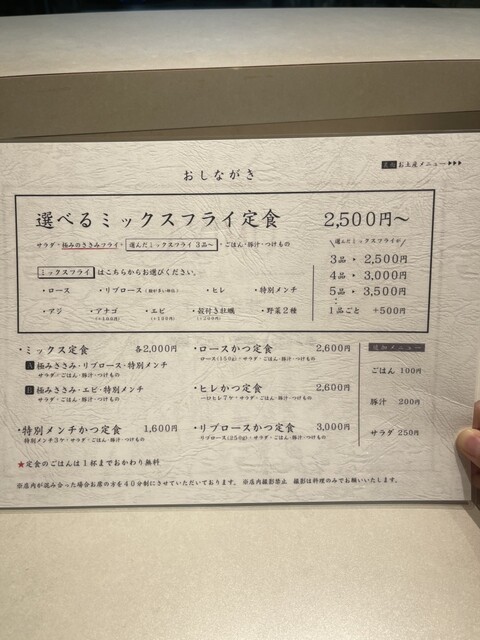 お土産メニュー▸▸▸
おしながき
選べるミックスフライ定食 2,500円〜
サラダ・極みのささみフライ・選んだミックスフライ 3品〜・ごはん・豚汁・つけもの
選んだミックスフライが
3品 ▸ 2,500円
4品 ▸ 3,000円
5品 ▸ 3,500円
1品ごと +500円
ミックスフライ はこちらからお選びください。
・ロース ・リブロース ・ヒレ ・特別メンチ
・アジ ・アナゴ ・エビ ・殻付き牡蠣 ・野菜2種
(+100円) (+100円) (+200円)
・ミックス定食 各2,000円
A 極みささみ・リブロース・特別メンチ
サラダ・ごはん・豚汁・つけもの
B 極みささみ・エビ・特別メンチ
サラダ・ごはん・豚汁・つけもの
・特別メンチかつ定食 1,600円
特別メンチ3ケ・サラダ・ごはん・豚汁・つけもの
・ロースかつ定食 2,600円
ロース(150g)・サラダ・ごはん・豚汁・つけもの
・ヒレかつ定食 2,600円
一口ヒレ7ケ・サラダ・ごはん・豚汁・つけもの
・リブロースかつ定食 3,000円
リブロース(250g)・サラダ・ごはん・豚汁・つけもの
追加メニュー
ごはん 100円
豚汁 200円
サラダ 250円
★定食のごはんは1杯までおかわり無料
※店内が混み合った場合お席の方を40分制にさせていただいております。 ※店内撮影禁止 撮影は料理のみでお願いいたします。